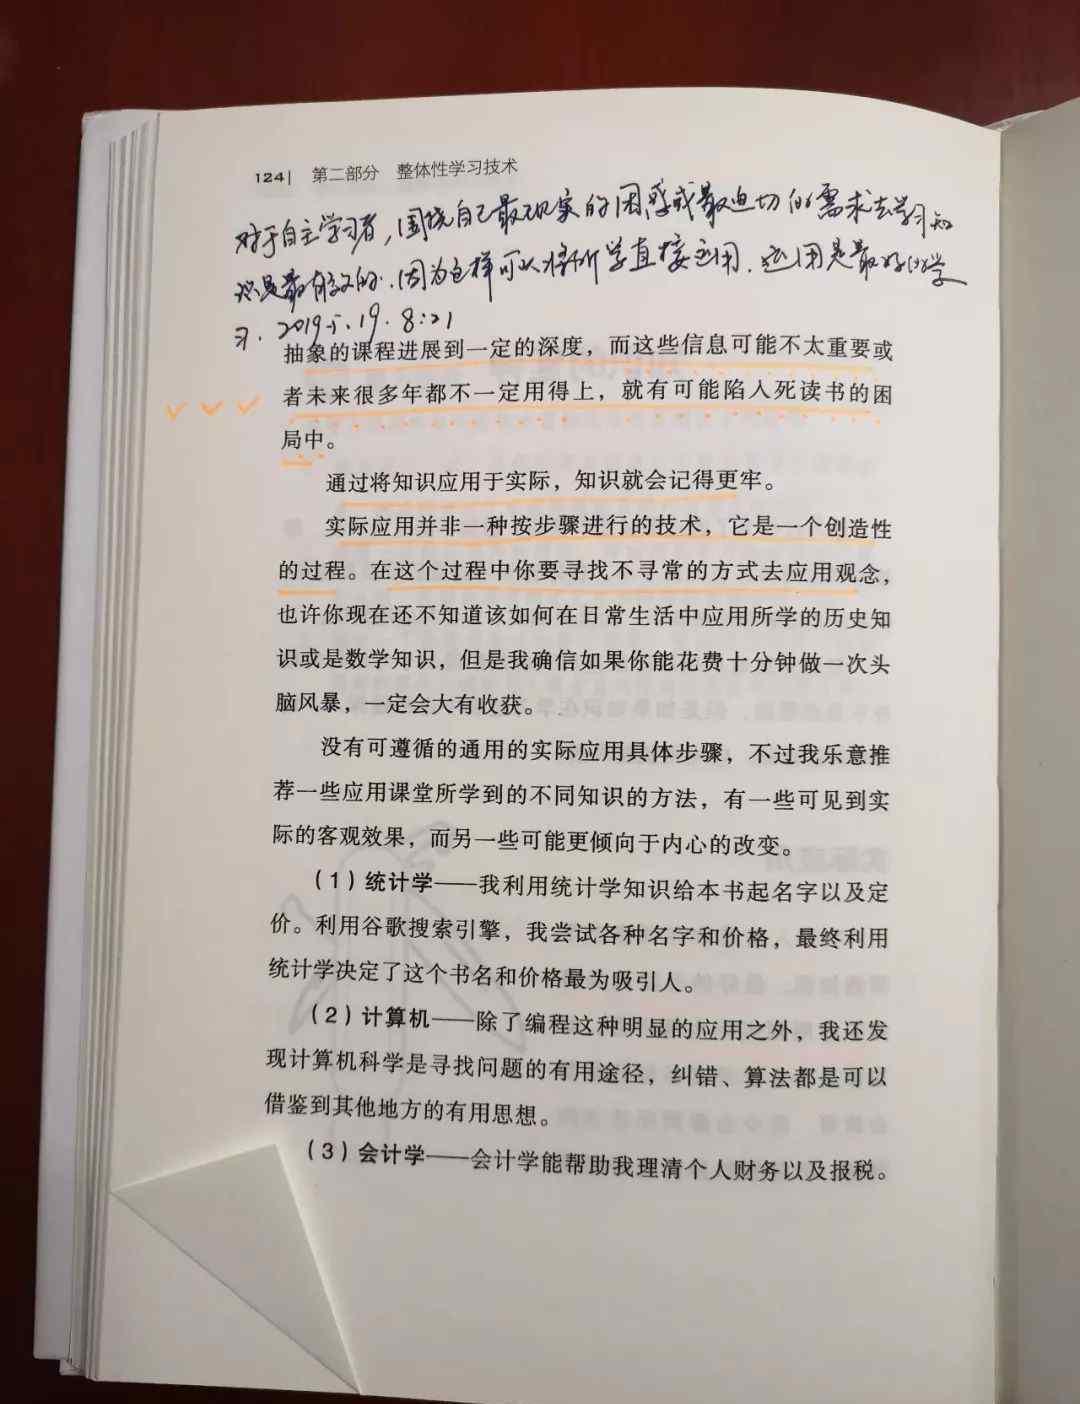 124| 第二部分 整体性学习技术
对于自主学习者,围绕自己最现实的困惑或最迫切的需求去学习知
识是最有效的.因为这样可以将所学直接运用.运用是最好的学
习. 2019.5.19. 8:21
抽象的课程进展到一定的深度，而这些信息可能不太重要或
者未来很多年都不一定用得上，就有可能陷入死读书的困
局中。
通过将知识应用于实际，知识就会记得更牢。
实际应用并非一种按步骤进行的技术，它是一个创造性
的过程。在这个过程中你要寻找不寻常的方式去应用观念，
也许你现在还不知道该如何在日常生活中应用所学的历史知
识或是数学知识，但是我确信如果你能花费十分钟做一次头
脑风暴，一定会大有收获。
没有可遵循的通用的实际应用具体步骤，不过我乐意推
荐一些应用课堂所学到的不同知识的方法，有一些可见到实
际的客观效果，而另一些可能更倾向于内心的改变。
（1）统计学——我利用统计学知识给本书起名字以及定
价。利用谷歌搜索引擎，我尝试各种名字和价格，最终利用
统计学决定了这个书名和价格最为吸引人。
（2）计算机——除了编程这种明显的应用之外，我还发
现计算机科学是寻找问题的有用途径，纠错、算法都是可以
借鉴到其他地方的有用思想。
（3）会计学——会计学能帮助我理清个人财务以及报税。